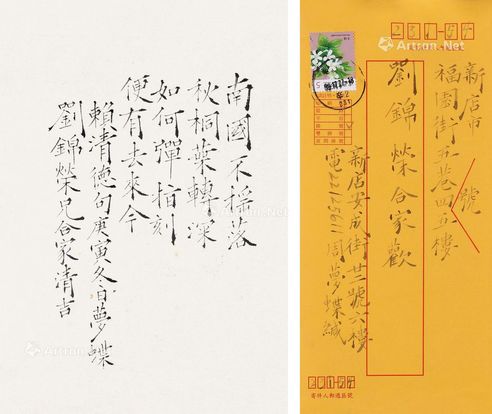 南國不搖落
秋桐葉轉深
如何彈指刻
便有去來今
賴清德句庚寅冬日夢蝶
劉錦榮兄合家清吉
Artron.Net
231-54
新店市
福園街五巷四五樓
號
劉錦榮合家歡
新店安成街號六樓
電22125611周夢蝶緘
寄件人郵遞區號
Artron.Net